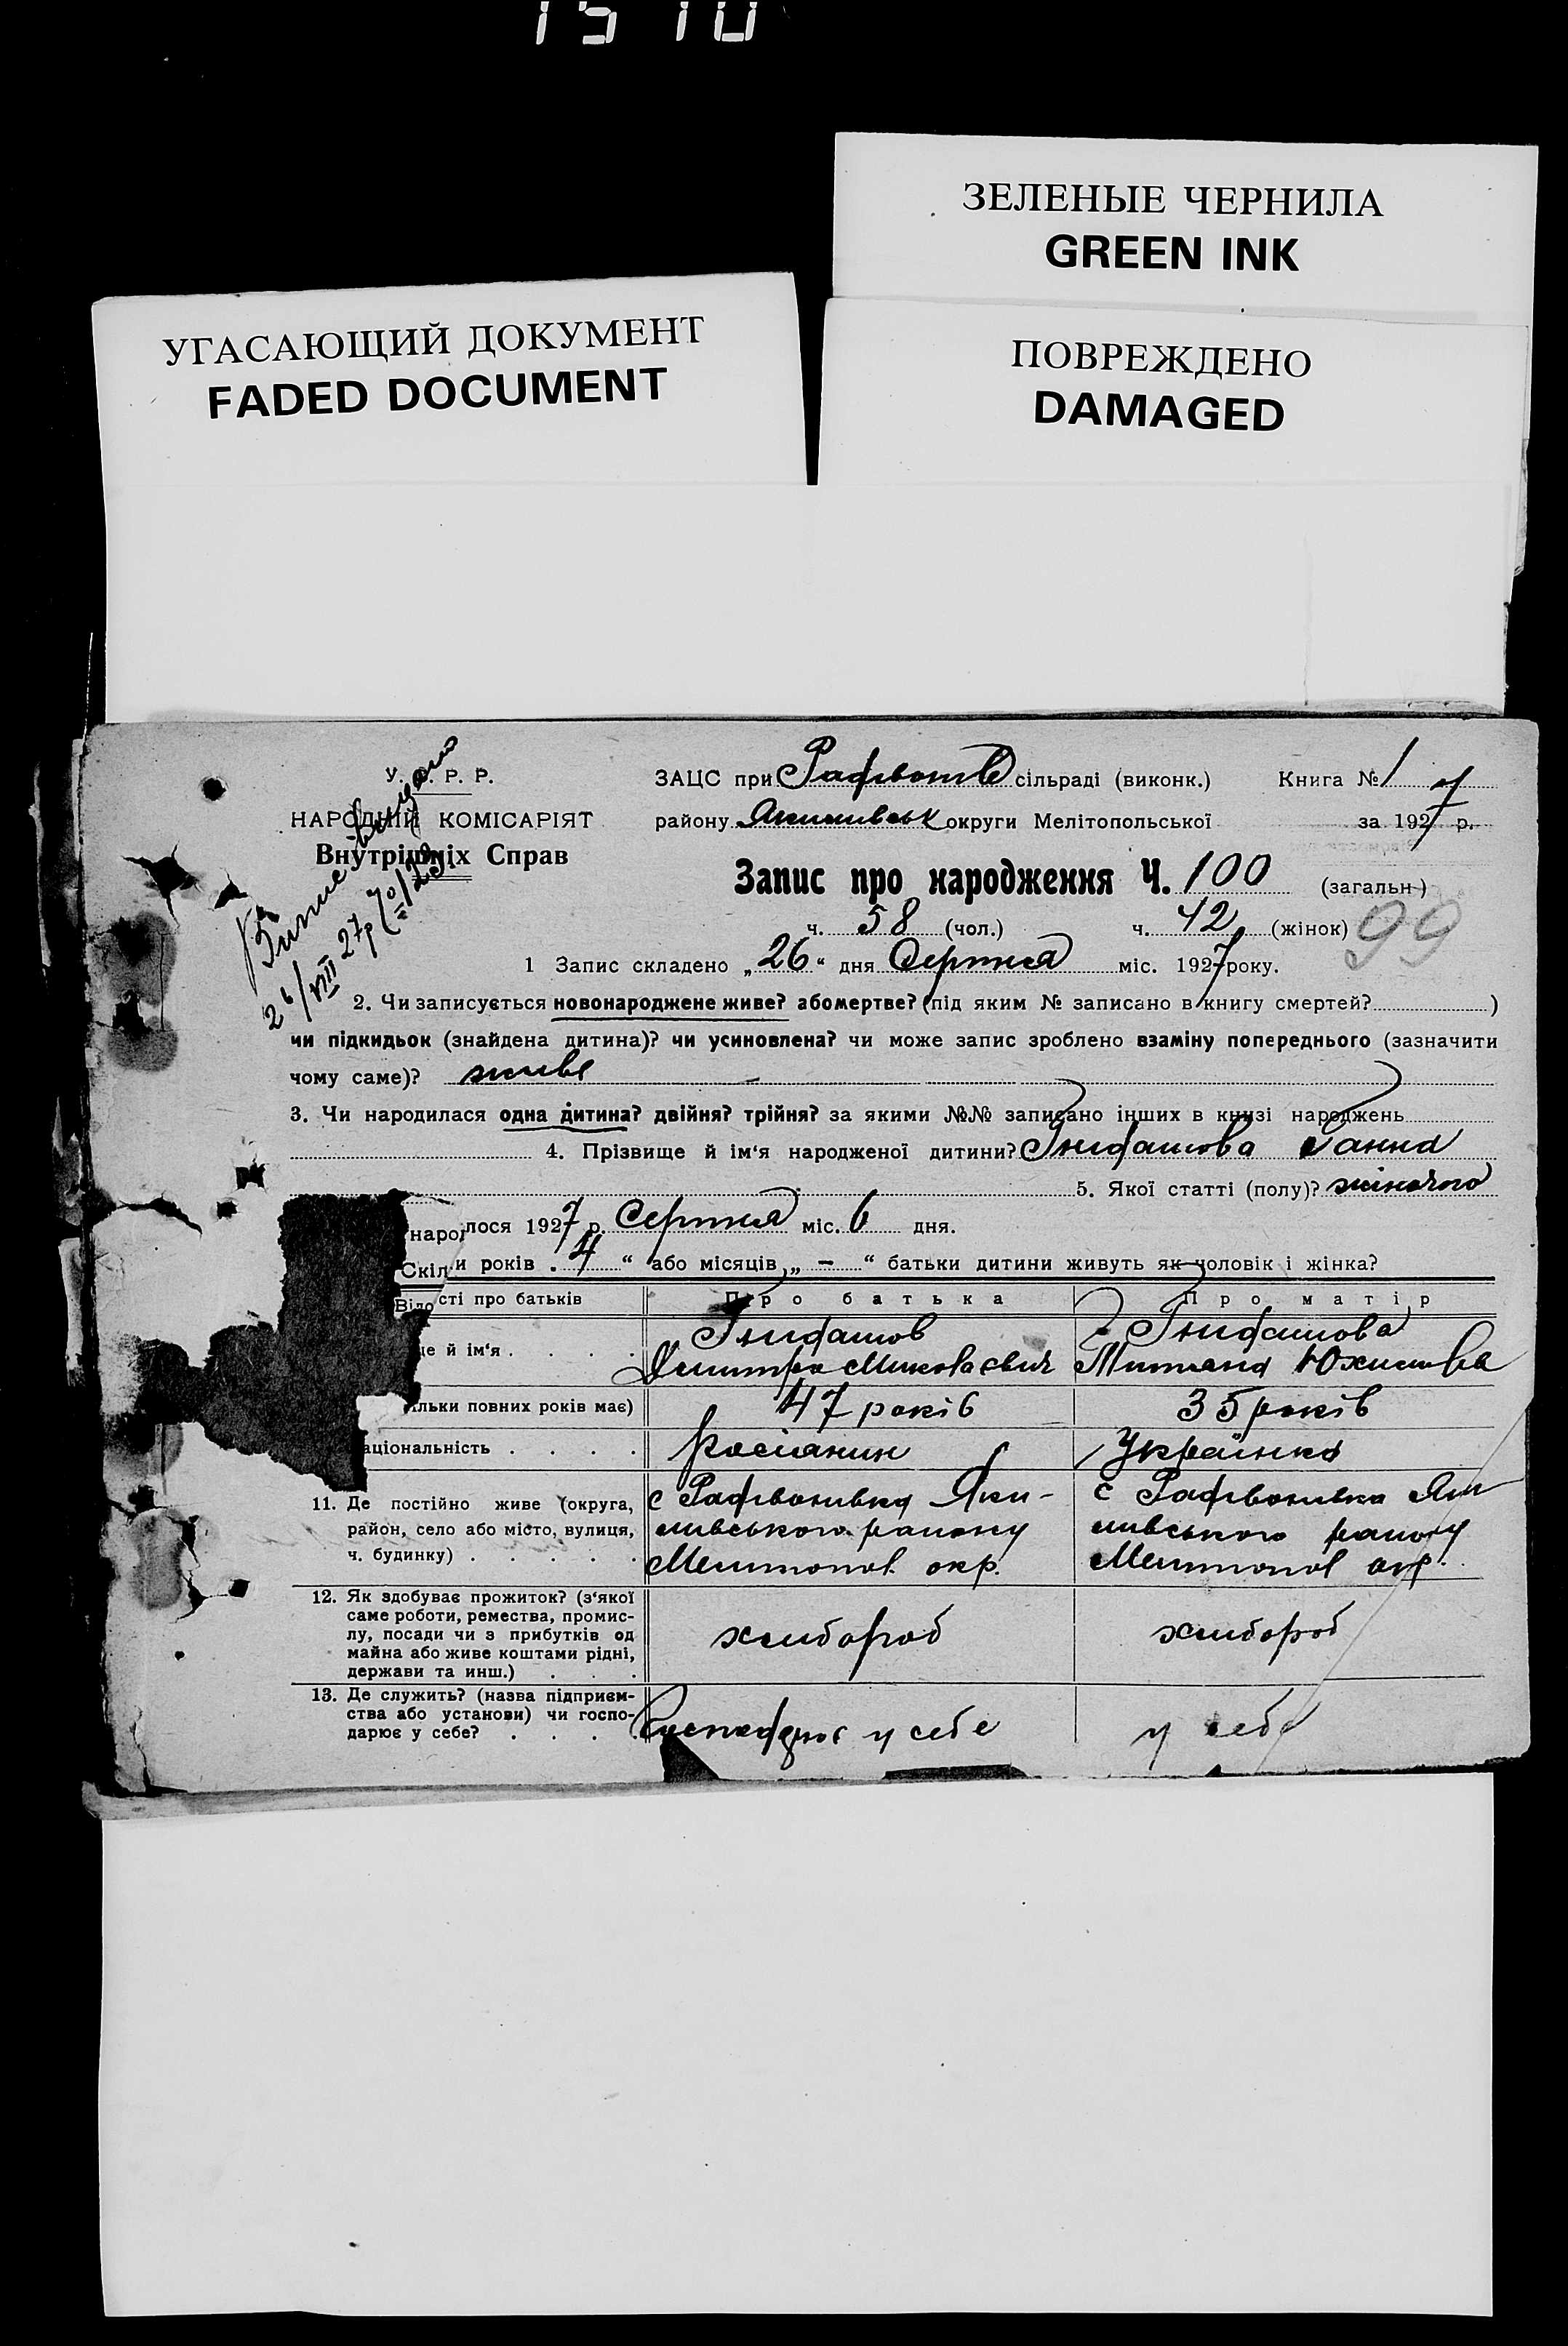 1510
ЗЕЛЕНЫЕ ЧЕРНИЛА
GREEN INK
УГАСАЮЩИЙ ДОКУМЕНТ
FADED DOCUMENT
ПОВРЕЖДЕНО
DAMAGED
У. Р. Р.
НАРОДНІЙ КОМІСАРІЯТ
Внутрішніх Справ
26/VIII 27р
ЗАЦС при сільраді (виконк.) Книга № 1
району Якимівськ округи Мелітопольської за 1927 р.
Запис про народження Ч. 100 (загальн)
ч. 58 (чол.) ч. 42 (жінок) 99
1 Запис складено „26“ дня Серпня міс. 1927 року.
2. Чи записується новонароджене живе? або мертве? (під яким № записано в книгу смертей? )
чи підкидьок (знайдена дитина)? чи усиновлена? чи може запис зроблено взаміну попереднього (зазначити
чому саме)? живе
3. Чи народилася одна дитина? двійня? трійня? за якими №№ записано інших в книзі народжень
4. Прізвище й ім‘я народженої дитини? Ганна
5. Якої статті (полу)? жіночого
наро лося 1927 р. Серпня міс. 6 дня.
Скіл и років . 4 “ або місяців „ – “ батьки дитини живуть як чоловік і жінка?
Відо сті про батьків Про батька Про матір
ще й ім‘я . . . .
Дмитро Миколаєвич Титяна Юхимівна
ільки повних років має) 47 років 35 років
аціональність . . . . Росіянин Українка
11. Де постійно живе (округа, с Радивонівка Яки- с Радивонівка Яки
район, село або місто, вулиця, мівського району мівського району
ч. будинку) . . . . . Мелітопол. окр. Мелітопол окр.
12. Як здобуває прожиток? (з‘якої
саме роботи, ремества, промис-
лу, посади чи з прибутків од хлібороб хлібороб
майна або живе коштами рідні,
держави та инш.) . . .
13. Де служить? (назва підприєм-
ства або установи) чи госпо-
дарює у себе? . . . . Господарює у себе у себе